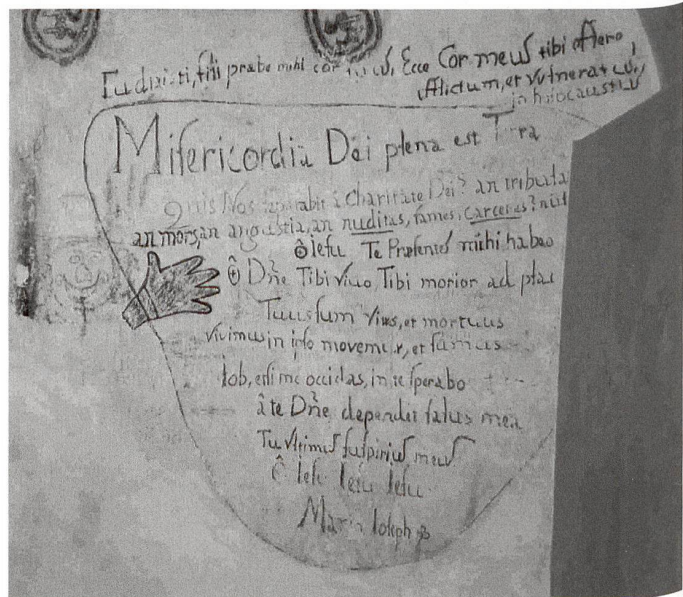 Tu dixisti, fili prabe mihi cor tuũ, Ecce Cor meũ tibi offero,
afflictum, et vulneratũ,
in holocaustũ
Misericordia Dei plena est Terra
Quis Nos separabit à Charitate Dei? an tribula
an mors, an angustia, an nuditas, fames, carceres?
ô iesu Te Presente mihi habeo
ô Dñe Tibi vivo Tibi morior ad
Tuus sum vivus, et mortuus
vivimus in ipso movemur, et sumus
Iob, etsi me occidas, in te sperabo
à te Dñe dependet salus mea
Tu ultimus suspirius meus
ô Iesu Iesu Iesu
Maria Ioseph